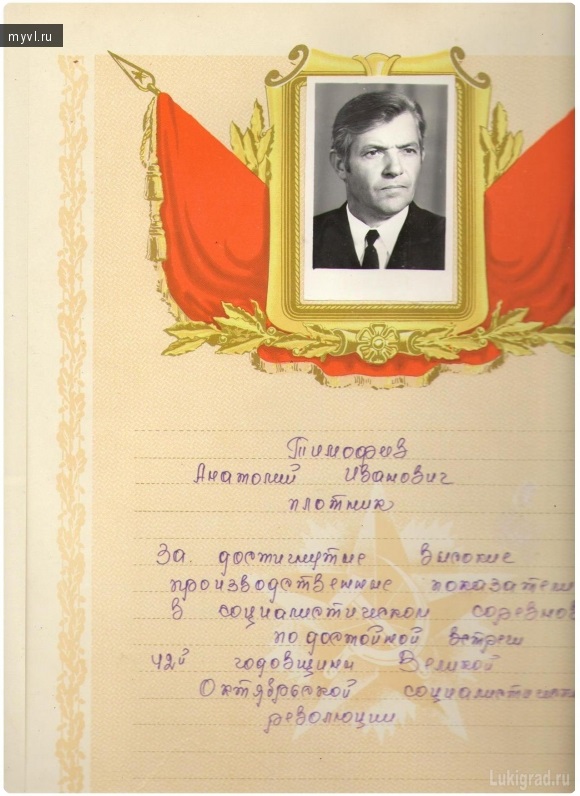 myvl.ru
Тимофеев
Анатолий Иванович
плотник
За достигнутые высокие
производственные показатели
в социалистическом соревнов
по достойной встречи
42й годовщины Великой
Октябрьской социалистическ
революции
Lukigrad.ru